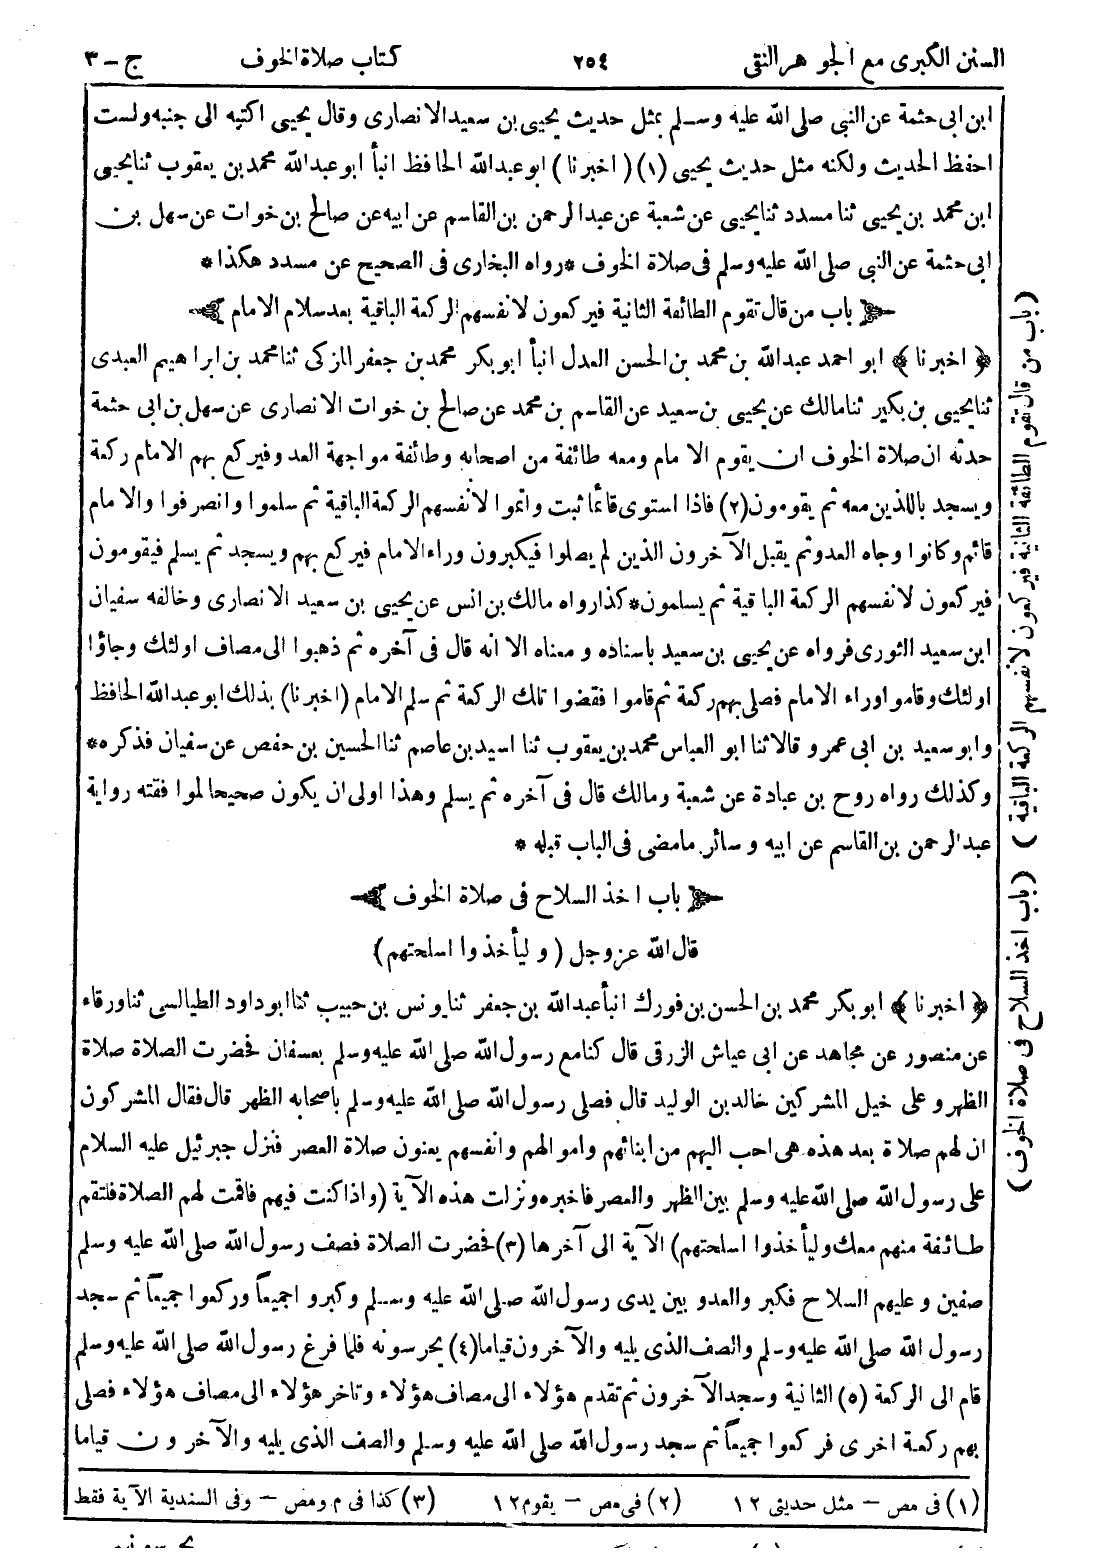 السنن الكبرى مع الجوهر النقى ٢٥٤ كتاب صلاة الخوف ج - ٣
ابن ابى حثمة عن النبى صلى الله عليه وسلم بمثل حديث يحيى بن سعيد الانصارى وقال يحيى اكتبه الى جنبه ولست
احفظ الحديث ولكنه مثل حديث يحيى (١) (اخبرنا) ابو عبد الله الحافظ انبأ ابو عبد الله محمد بن يعقوب ثنا يحيى
ابن محمد بن يحيى ثنا مسدد ثنا يحيى عن شعبة عن عبد الرحمن بن القاسم عن ابيه عن صالح بن خوات عن سهل بن
ابى حثمة عن النبى صلى الله عليه وسلم فى صلاة الخوف * رواه البخارى فى الصحيح عن مسدد هكذا *
باب من قال تقوم الطائفة الثانية فيركعون لانفسهم الركعة الباقية بعد سلام الامام
﴿ اخبرنا ﴾ ابو احمد عبد الله بن محمد بن الحسن العدل انبأ ابو بكر محمد بن جعفر المزكى ثنا محمد بن ابراهيم العبدى
ثنا يحيى بن بكير ثنا مالك عن يحيى بن سعيد عن القاسم بن محمد عن صالح بن خوات الانصارى عن سهل بن ابى حثمة
حدثه ان صلاة الخوف ان يقوم الامام ومعه طائفة من اصحابه وطائفة مواجهة العدو فيركع بهم الامام ركعة
ويسجد باللذين معه ثم يقومون (٢) فاذا استوى قائما ثبت واتموا لانفسهم الركعة الباقية ثم سلموا وانصرفوا والامام
قائم وكانوا وجاه العدو ثم يقبل الآخرون الذين لم يصلوا فيكبرون وراء الامام فيركع بهم ويسجد ثم يسلم فيقومون
فيركعون لانفسهم الركعة الباقية ثم يسلمون * كذا رواه مالك بن انس عن يحيى بن سعيد الانصارى وخالفه سفيان
ابن سعيد الثورى فرواه عن يحيى بن سعيد باسناده ومعناه الا انه قال فى آخره ثم ذهبوا الى مصاف اولئك وجاؤا
اولئك وقاموا وراء الامام فصلى بهم ركعة ثم قاموا فقضوا تلك الركعة ثم سلم الامام (اخبرنا) بذلك ابو عبد الله الحافظ
وابو سعيد بن ابى عمرو قالا ثنا ابو العباس محمد بن يعقوب ثنا اسيد بن عاصم ثنا الحسين بن حفص عن سفيان فذكره *
وكذلك رواه روح بن عبادة عن شعبة ومالك قال فى آخره ثم يسلم وهذا اولى ان يكون صحيحا لموافقته رواية
عبد الرحمن بن القاسم عن ابيه وسائر ما مضى فى الباب قبله *
باب اخذ السلاح فى صلاة الخوف
قال الله عز وجل (وليأخذوا اسلحتهم)
﴿ اخبرنا ﴾ ابو بكر محمد بن الحسن بن فورك انبأ عبد الله بن جعفر ثنا يونس بن حبيب ثنا ابو داود الطيالسى ثنا ورقاء
عن منصور عن مجاهد عن ابى عياش الزرقى قال كنا مع رسول الله صلى الله عليه وسلم بعسفان فحضرت الصلاة صلاة
الظهر وعلى خيل المشركين خالد بن الوليد قال فصلى رسول الله صلى الله عليه وسلم باصحابه الظهر قال فقال المشركون
ان لهم صلاة بعد هذه هى احب اليهم من ابنائهم واموالهم وانفسهم يعنون صلاة العصر فنزل جبرئيل عليه السلام
على رسول الله صلى الله عليه وسلم بين الظهر والعصر فاخبره ونزلت هذه الآية (واذا كنت فيهم فاقمت لهم الصلاة فلتقم
طائفة منهم معك وليأخذوا اسلحتهم) الآية الى آخرها (٣) فحضرت الصلاة فصف رسول الله صلى الله عليه وسلم
صفين وعليهم السلاح فكبر والعدو بين يدى رسول الله صلى الله عليه وسلم وكبروا جميعاً وركعوا جميعاً ثم سجد
رسول الله صلى الله عليه وسلم والصف الذى يليه والآخرون قياما (٤) يحرسونه فلما فرغ رسول الله صلى الله عليه وسلم
قام الى الركعة (٥) الثانية وسجد الآخرون ثم تقدم هؤلاء الى مصاف هؤلاء وتاخر هؤلاء الى مصاف هؤلاء فصلى
بهم ركعة اخرى فركعوا جميعاً ثم سجد رسول الله صلى الله عليه وسلم والصف الذى يليه والآخرون قياما
(١) فى مص - مثل حديثى ١٢ (٢) فى مص - يقوم ١٢ (٣) كذا فى م ومص - وفى السندية الآية فقط
(باب من قال تقوم الطائفة الثانية فيركعون لانفسهم الركعة الباقية)
(باب اخذ السلاح فى صلاة الخوف)